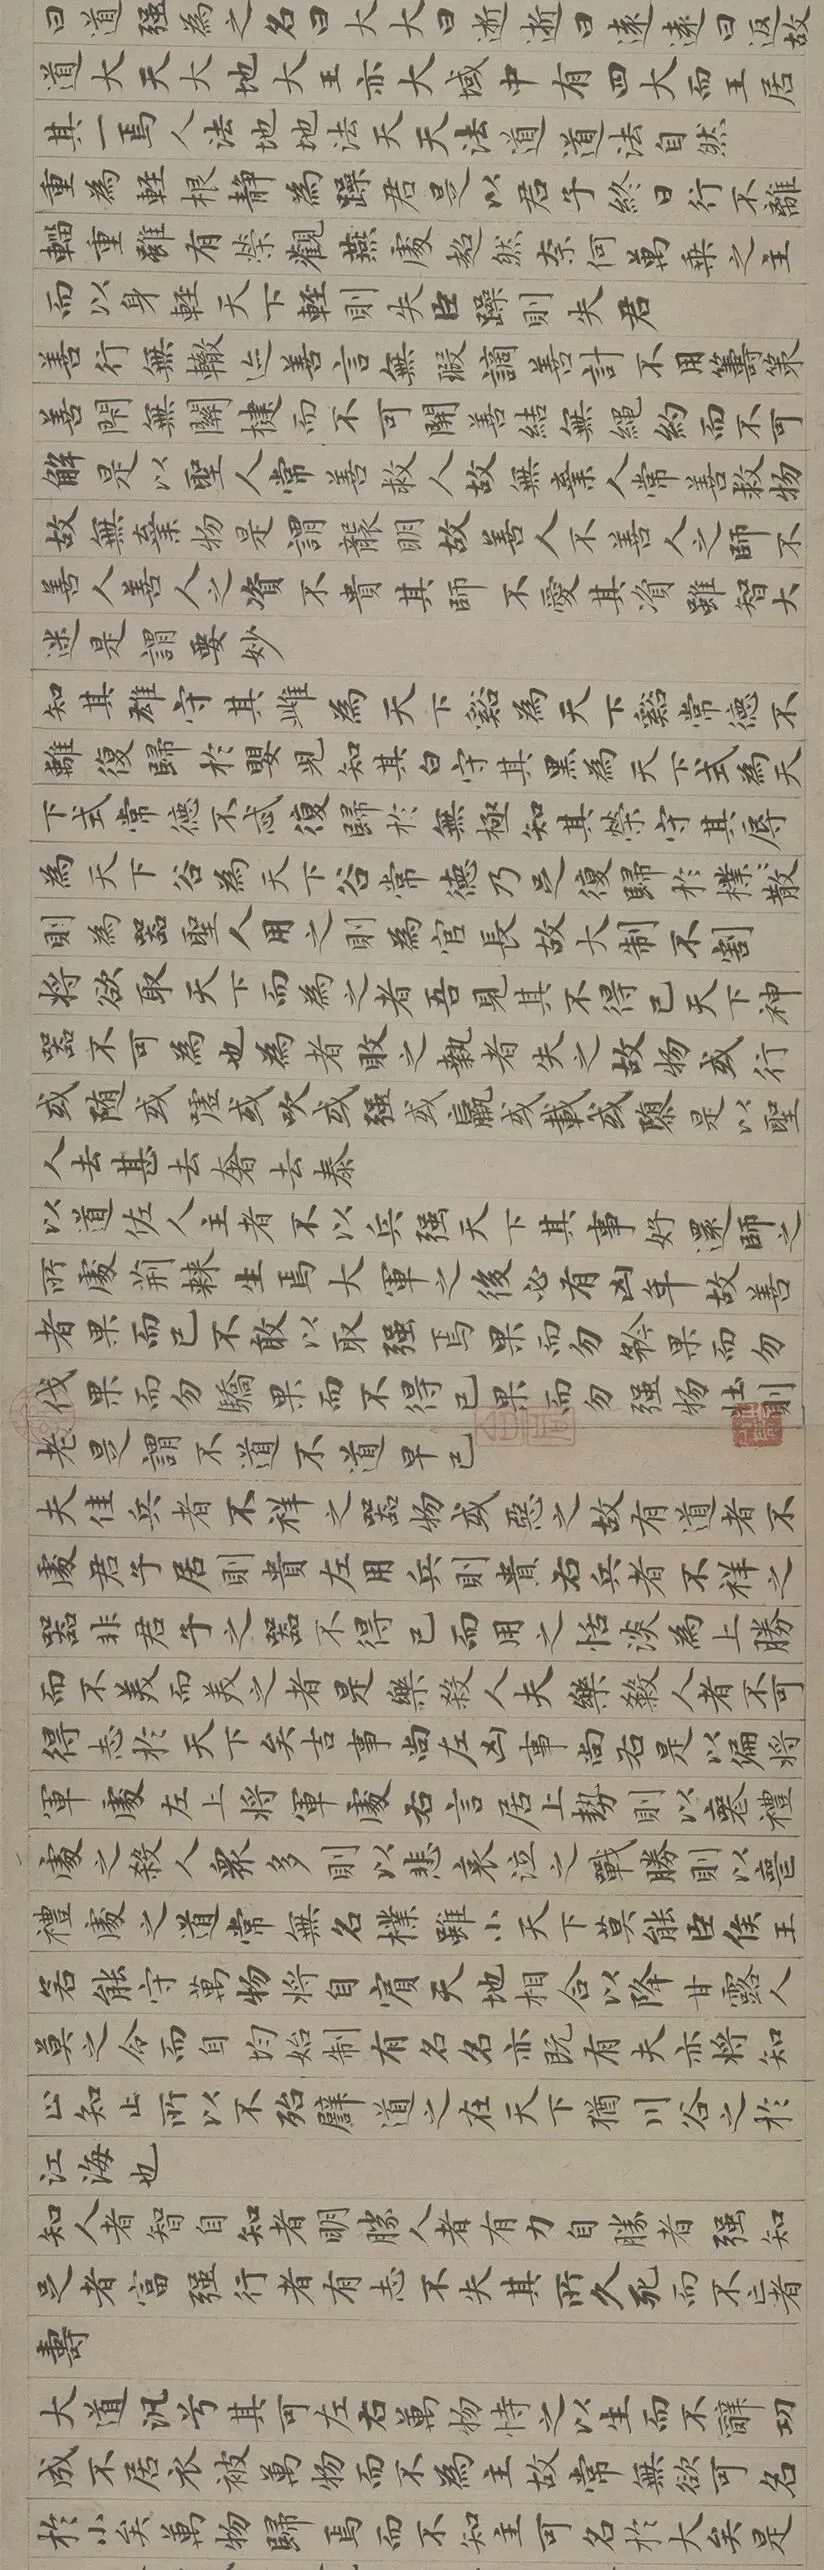 曰道强為之名曰大大曰逝逝曰遠遠曰返故
道大天大地大王亦大域中有四大而王居
其一焉人法地地法天天法道道法自然
重為軽根静為躁君是以君子終日行不離
輜重雖有榮觀燕處超然奈何萬乗之主
而以身軽天下軽則失臣躁則失君
善行無轍迹善言無瑕謫善計不用籌策
善閇無關楗而不可開善結無繩約而不可
解是以聖人常善救人故無棄人常善救物
故無棄物是謂襲明故善人不善人之師不
善人善人之資不貴其師不愛其資雖智大
迷是謂要妙
知其雄守其雌為天下谿為天下谿常德不
離復歸於嬰兒知其白守其黑為天下式為天
下式常德不忒復歸於無極知其榮守其辱
為天下谷為天下谷常德乃足復歸於樸散
則為器聖人用之則為官長故大制不割
将欲取天下而為之者吾見其不得已天下神
器不可為也為者敗之執者失之故物或行
或随或嘘或吹或强或羸或載或隳是以聖
人去甚去奢去泰
以道佐人主者不以兵强天下其事好還師之
所處荆棘生焉大軍之後必有凶年故善
者果而已不敢以取强焉果而勿矜果而勿
伐果而勿驕果而不得已果而勿强物壮則
老是謂不道不道早已
夫佳兵者不祥之器物或惡之故有道者不
處君子居則貴左用兵則貴右兵者不祥之
器非君子之器不得已而用之恬淡為上勝
而不美而美之者是樂殺人夫樂殺人者不可
得志於天下矣吉事尚左凶事尚右是以偏将
軍處左上将軍處右言居上勢則以喪禮
處之殺人衆多則以悲哀泣之戰勝則以喪
禮處之道常無名樸雖小天下莫能臣侯王
若能守萬物将自賓天地相合以降甘露人
莫之令而自均始制有名名亦既有夫亦将知
止知止所以不殆譬道之在天下猶川谷之於
江海也
知人者智自知者明勝人者有力自勝者强知
足者富强行者有志不失其所久死而不亡者
壽
大道汎兮其可左右萬物恃之以生而不辭功
成不居衣被萬物而不為主故常無欲可名
於小矣萬物歸焉而不知主可名於大矣是